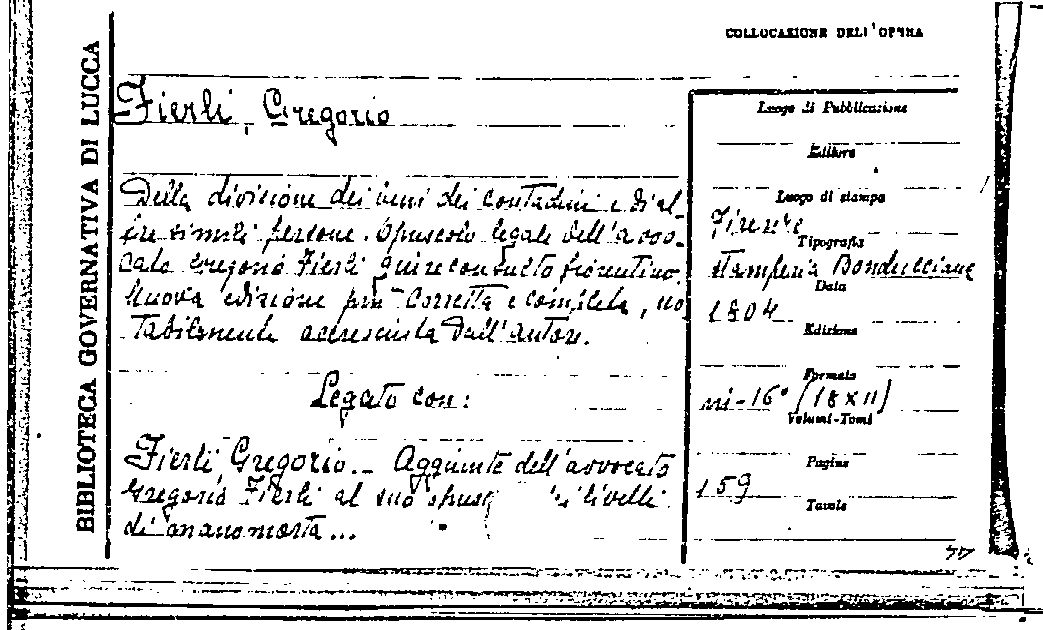 COLLOCAZIONE DELL'OPERA
BIBLIOTECA GOVERNATIVA DI LUCCA
Fierli, Gregorio
Della divisione dei beni dei contadini e di al-
tre simili persone. Opuscolo legale dell'avvo-
cato Gregorio Fierli giureconsulto fiorentino.
Nuova edizione più corretta e completa, no
tabilmente accresciuta dall'autore.
Legato con:
Fierli Gregorio._ Aggiunte dell'avvocato
Gregorio Fierli al suo opusc livelli
di manomorta...
Luogo di Pubblicazione
Editore
Luogo di stampa
Firenze
Tipografia
Stamperia Bonducciana
Data
1804
Edizione
Formato
in-16° (18 x 11)
Volumi-Tomi
Pagine
159
Tavole